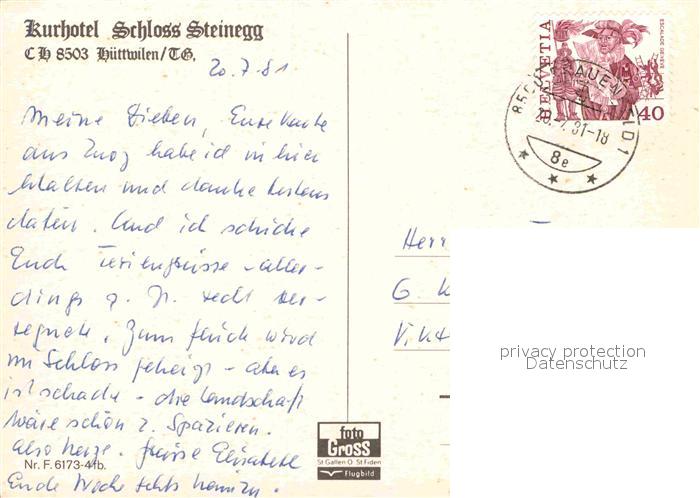 Kurhotel Schloss Steinegg
CH 8503 Hüttwilen/TG.
20.7.81
Meine Lieben, Eure Karte
aus Zuoz habe ich hier
erhalten und danke bestens
dafür. Und ich schicke
Euch Feriengrüsse - aller-
dings z. Zt. recht ver-
regnete. Zum Glück wird
im Schloss geheizt - aber es
ist schade - die Landschaft
wäre schön z. Spazieren.
Also herzl. Grüsse Elisabeth
Ende Woche geht's heimzu.
Nr. F. 6173-4fb.
HELVETIA
ESCALADE GENÈVE
40
8500 FRAUENFELD 1
20.7.81-18
8e
Herr
G. K
Vikt
privacy protection
Datenschutz
foto
Gross
St Gallen O St Fiden
Flugbild